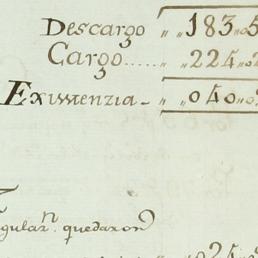 Descargo „ „183„5
Cargo..... „ „224„2
Existenzia - „ „040„
gular.n quedaron
„025„